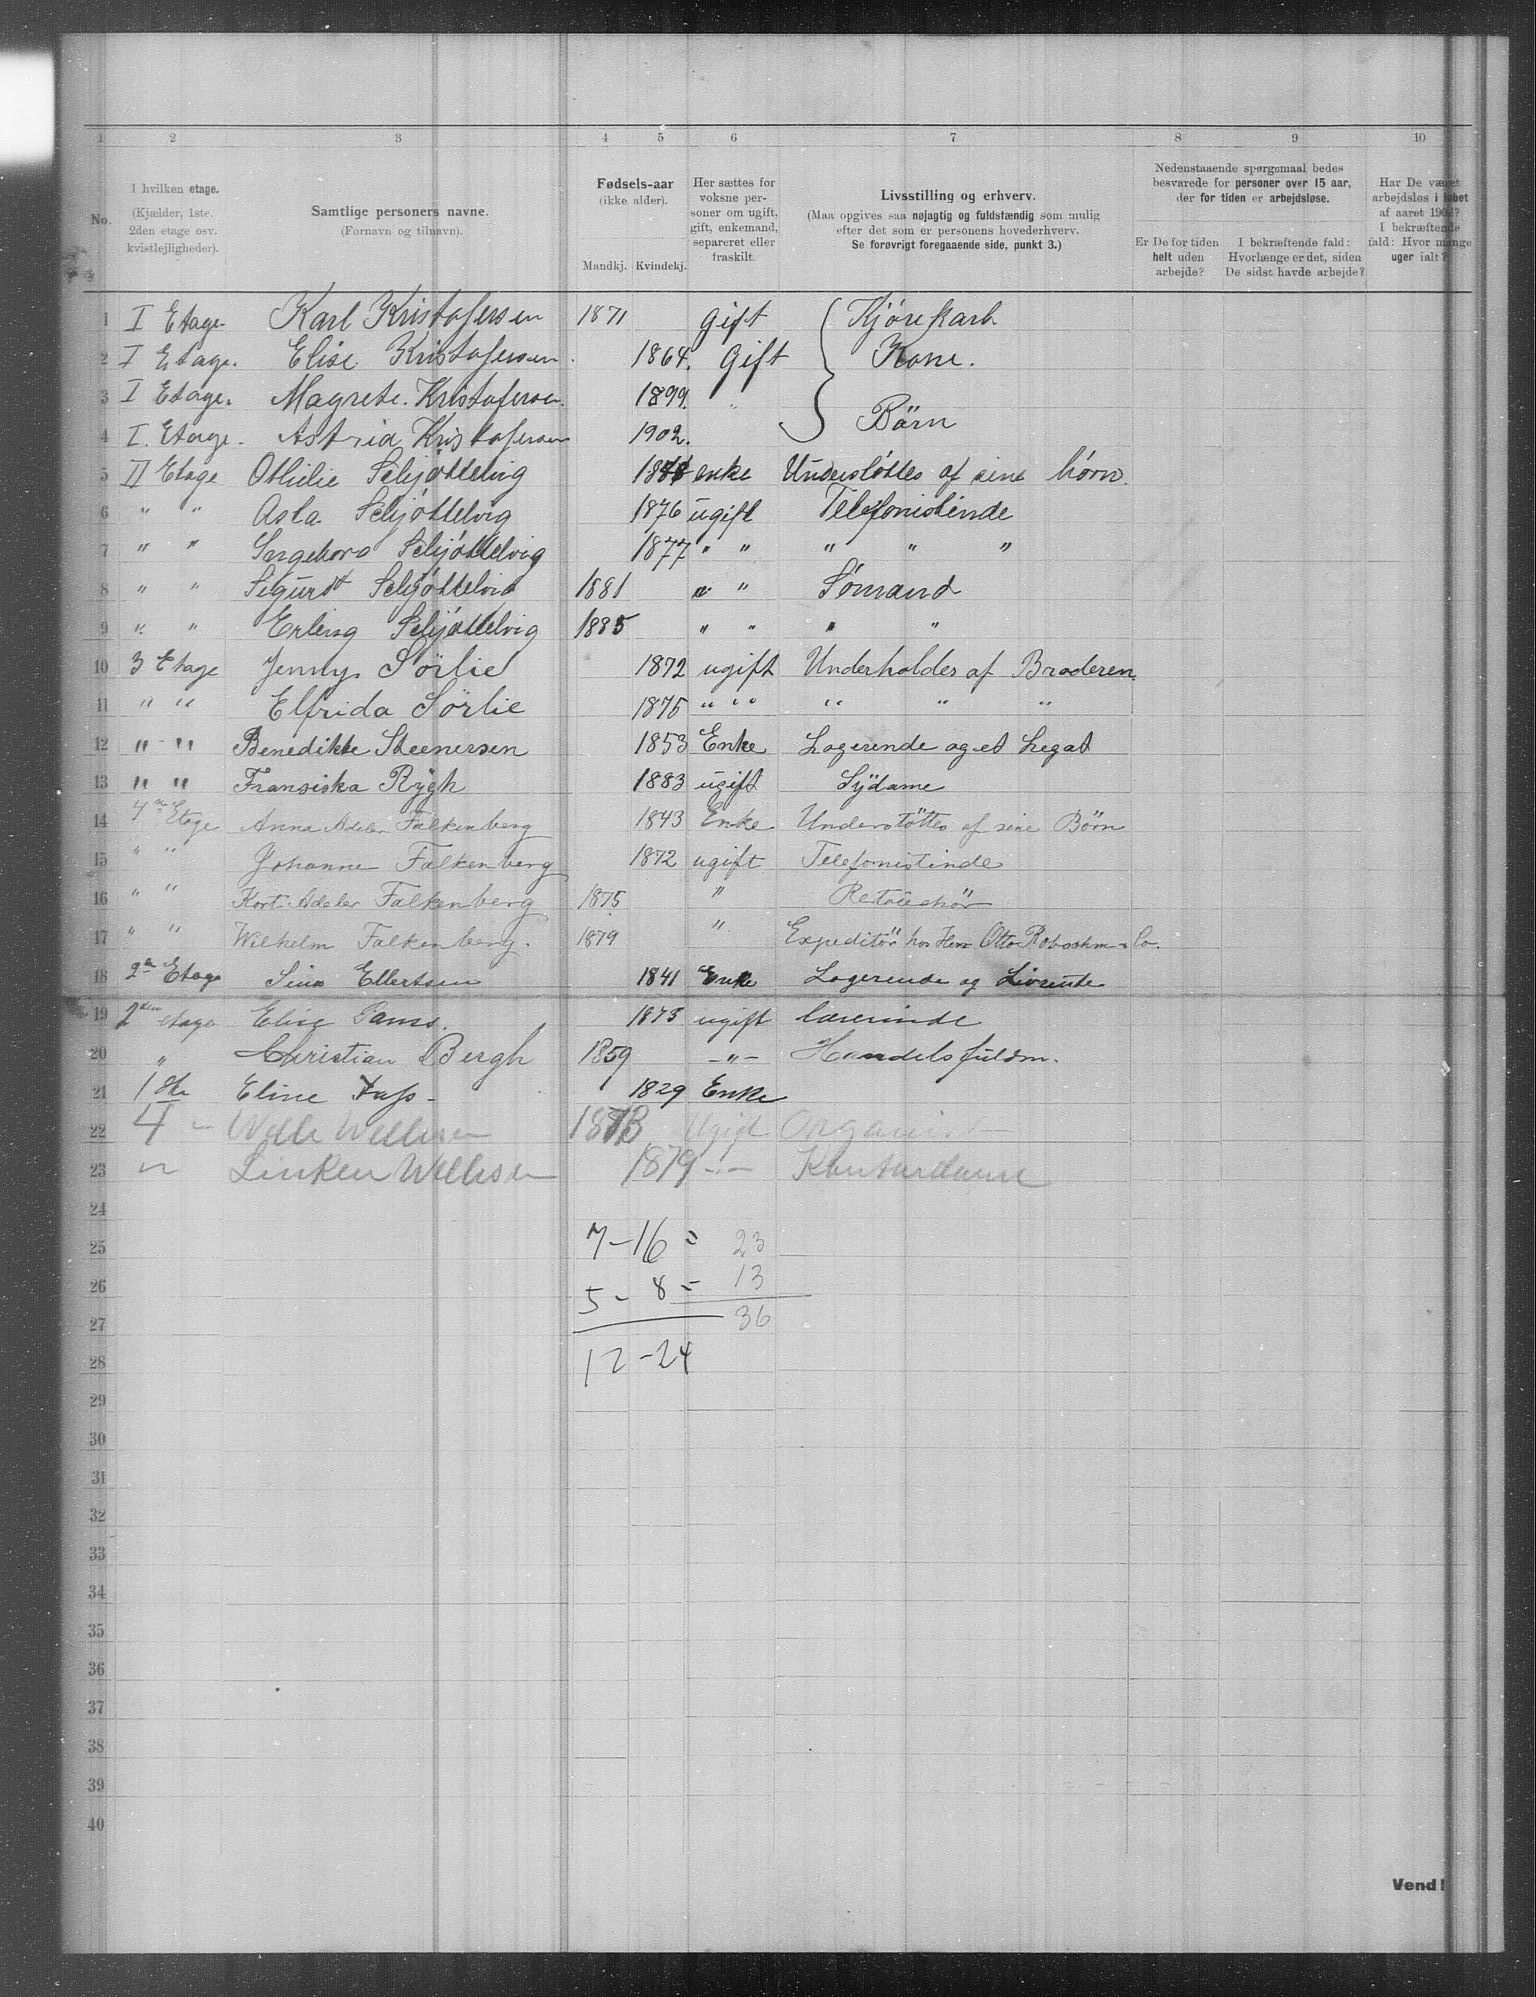 1 2 3 4 5 6 7 8 9 10
No.
I hvilken etage.
(Kjælder, 1ste.
2den etage osv.
kvistlejligheder).
Samtlige personers navne.
(Fornavn og tilnavn).
Fødsels-aar
(ikke alder).
Mandkj. Kvindekj.
Her sættes for
voksne per-
soner om ugift,
gift, enkemand,
separeret eller
fraskilt.
Livsstilling og erhverv.
(Maa opgives saa nøjagtig og fuldstændig som mulig
efter det som er personens hovederhverv.
Se forøvrigt foregaaende side, punkt 3.)
Nedenstaaende spørgsmaal bedes
besvarede for personer over 15 aar,
der for tiden er arbejdsløse.
Er De for tiden
helt uden
arbejde?
I bekræftende fald:
Hvorlænge er det, siden
De sidst havde arbejde?
Har De været
arbejdsløs i løbet
af aaret 190?
I bekræftende
fald: Hvor mange
uger ialt?
1 I Etage Karl Kristofersen 1871 Gift Kjørekarl
2 I Etage. Elise Kristofersen 1864. Gift Kone.
3 I Etage. Magrete. Kristofersen. 1899. "
Børn
4 I. Etage. Astrid Kristofersen 1902.
5 II Etage Othilie Schjøttelvig enke Understøttes af sine børn.
6 " " Asta Schjøttelvig 1876 ugift Telefonistinde
7 " " Ingeborg Schjøttelvig 1877 " " " " "
8 " " Sigurd Schjøttelvig 1881 " " Sømand
9 " " Erling Schjøttelvig 1885 " " " "
10 3 Etage Jenny Sörlie 1872 ugift Underholdes af Broderen.
11 " " Elfrida Sörlie 1875 " " " " " "
12 " - " Benedikte Steenersen 1853 Enke Logerende og et Legat
13 " " Fransiska Rygh 1883 ugift Sydame
14 4de Etage Anna Adeler Falkenberg 1843 Enke Understöttes af sine Börn
15 " " Johanne Falkenberg 1872 ugift Telefonistinde
16 " " Kort Adeler Falkenberg 1875 " Retouchör
17 " " Wilhelm Falkenberg. 1879 " Expeditör hos Herr Otto & Co.
18 2de Etage Sina Ellertsen 1841 Enke Logerende og Livrente
19 2den etage Elise 1873 ugift lærerinde
20 " Christian Bergh 1859 -"- Handelsfuldm.
21 1ste Eline 1829 Enke
22 4 - Willesen Ugift Organist
23 " Willesen 1879 - - Kontordame
24
25 7-16 = 23
26 5 - 8 = 13
27 36
28 12-24
29
30
31
32
33
34
35
36
37
38
39
40
Vend!